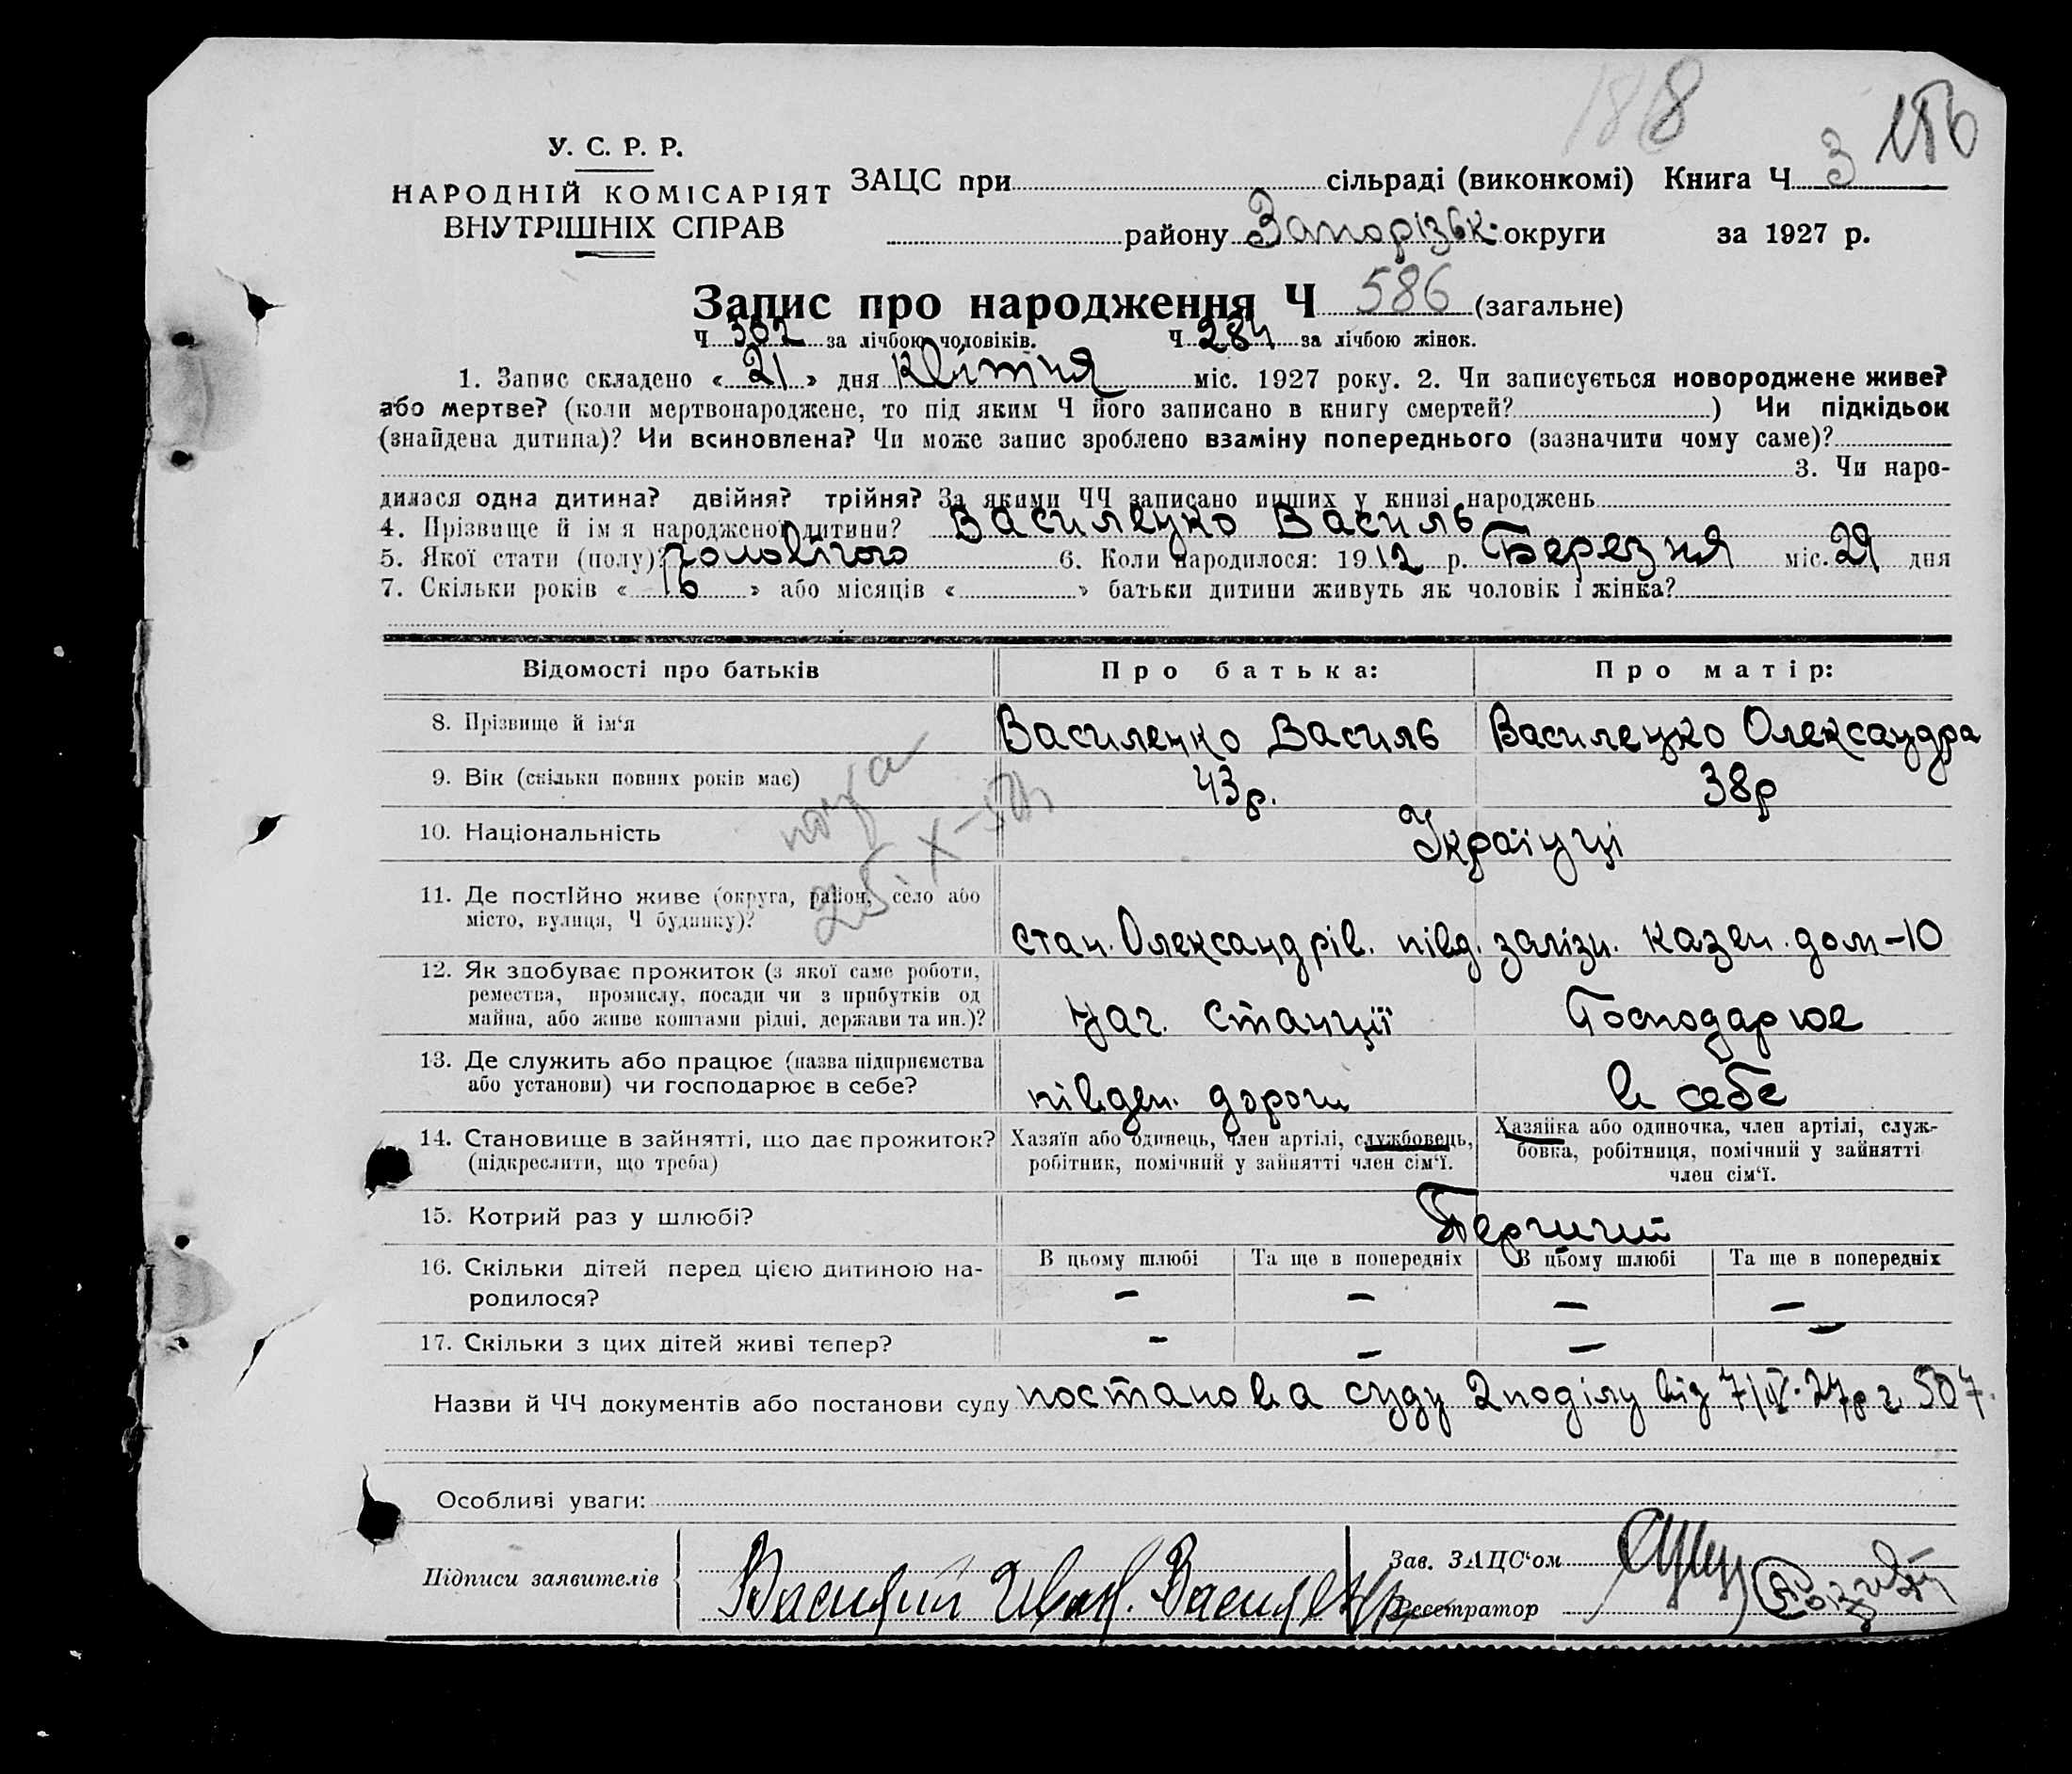 188
156
У. С. Р. Р.
НАРОДНІЙ КОМІСАРІЯТ
ВНУТРІШНІХ СПРАВ
ЗАЦС при сільраді (виконкомі) Книга Ч 3
району Запорізьк. округи за 1927 р.
Запис про народження Ч 586 (загальне)
Ч 302 за лічбою чоловіків. Ч 284 за лічбою жінок.
1. Запис складено « 21 » дня Квітня міс. 1927 року. 2. Чи записується новороджене живе?
або мертве? (коли мертвонароджене, то під яким Ч його записано в книгу смертей? ) Чи підкідьок
(знайдена дитина)? Чи всиновлена? Чи може запис зроблено взаміну попереднього (зазначити чому саме)?
3. Чи наро-
дилася одна дитина? двійня? трійня? За якими ЧЧ записано инших у книзі народжень
4. Прізвище й ім я народженої дитини? Василенко Василь
5. Якої стати (полу)? чоловічого 6. Коли народилося: 1912 р. Березня міс. 29 дня
7. Скільки років « 16 » або місяців « » батьки дитини живуть як чоловік і жінка?
Відомості про батьків Про батька: Про матір:
8. Прізвище й ім'я Василенко Василь Василенко Олександра
9. Вік (скільки повних років має) 43р. 38р
10. Національність Українці
11. Де постійно живе (округа, район, село або
місто, вулиця, Ч будинку)? стан. Олександрів. півд. залізн. казен. дом-10
12. Як здобуває прожиток (з якої саме роботи,
ремества, промислу, посади чи з прибутків од
майна, або живе коштами рідні, держави та ин.)? Нач. Станції Господарює
13. Де служить або працює (назва підприємства
або установи) чи господарює в себе? півден. дороги в себе
14. Становище в зайнятті, що дає прожиток?
(підкреслити, що треба)
Хазяїн або одинець, член артілі, службовець,
робітник, помічний у зайнятті член сім'ї.
Хазяйка або одиночка, член артілі, служ-
бовка, робітниця, помічний у зайнятті
член сім'ї.
15. Котрий раз у шлюбі? Перший
16. Скільки дітей перед цією дитиною на-
родилося?
В цьому шлюбі Та ще в попередніх В цьому шлюбі Та ще в попередніх
– – – –
17. Скільки з цих дітей живі тепер? – – – –
Назви й ЧЧ документів або постанови суду постанова суду 2 поділу від 7/IV-27р ч. 507.
Особливі уваги:
Підписи заявителів Василий Иван. Василенко
Зав. ЗАЦС'ом
Реєстратор